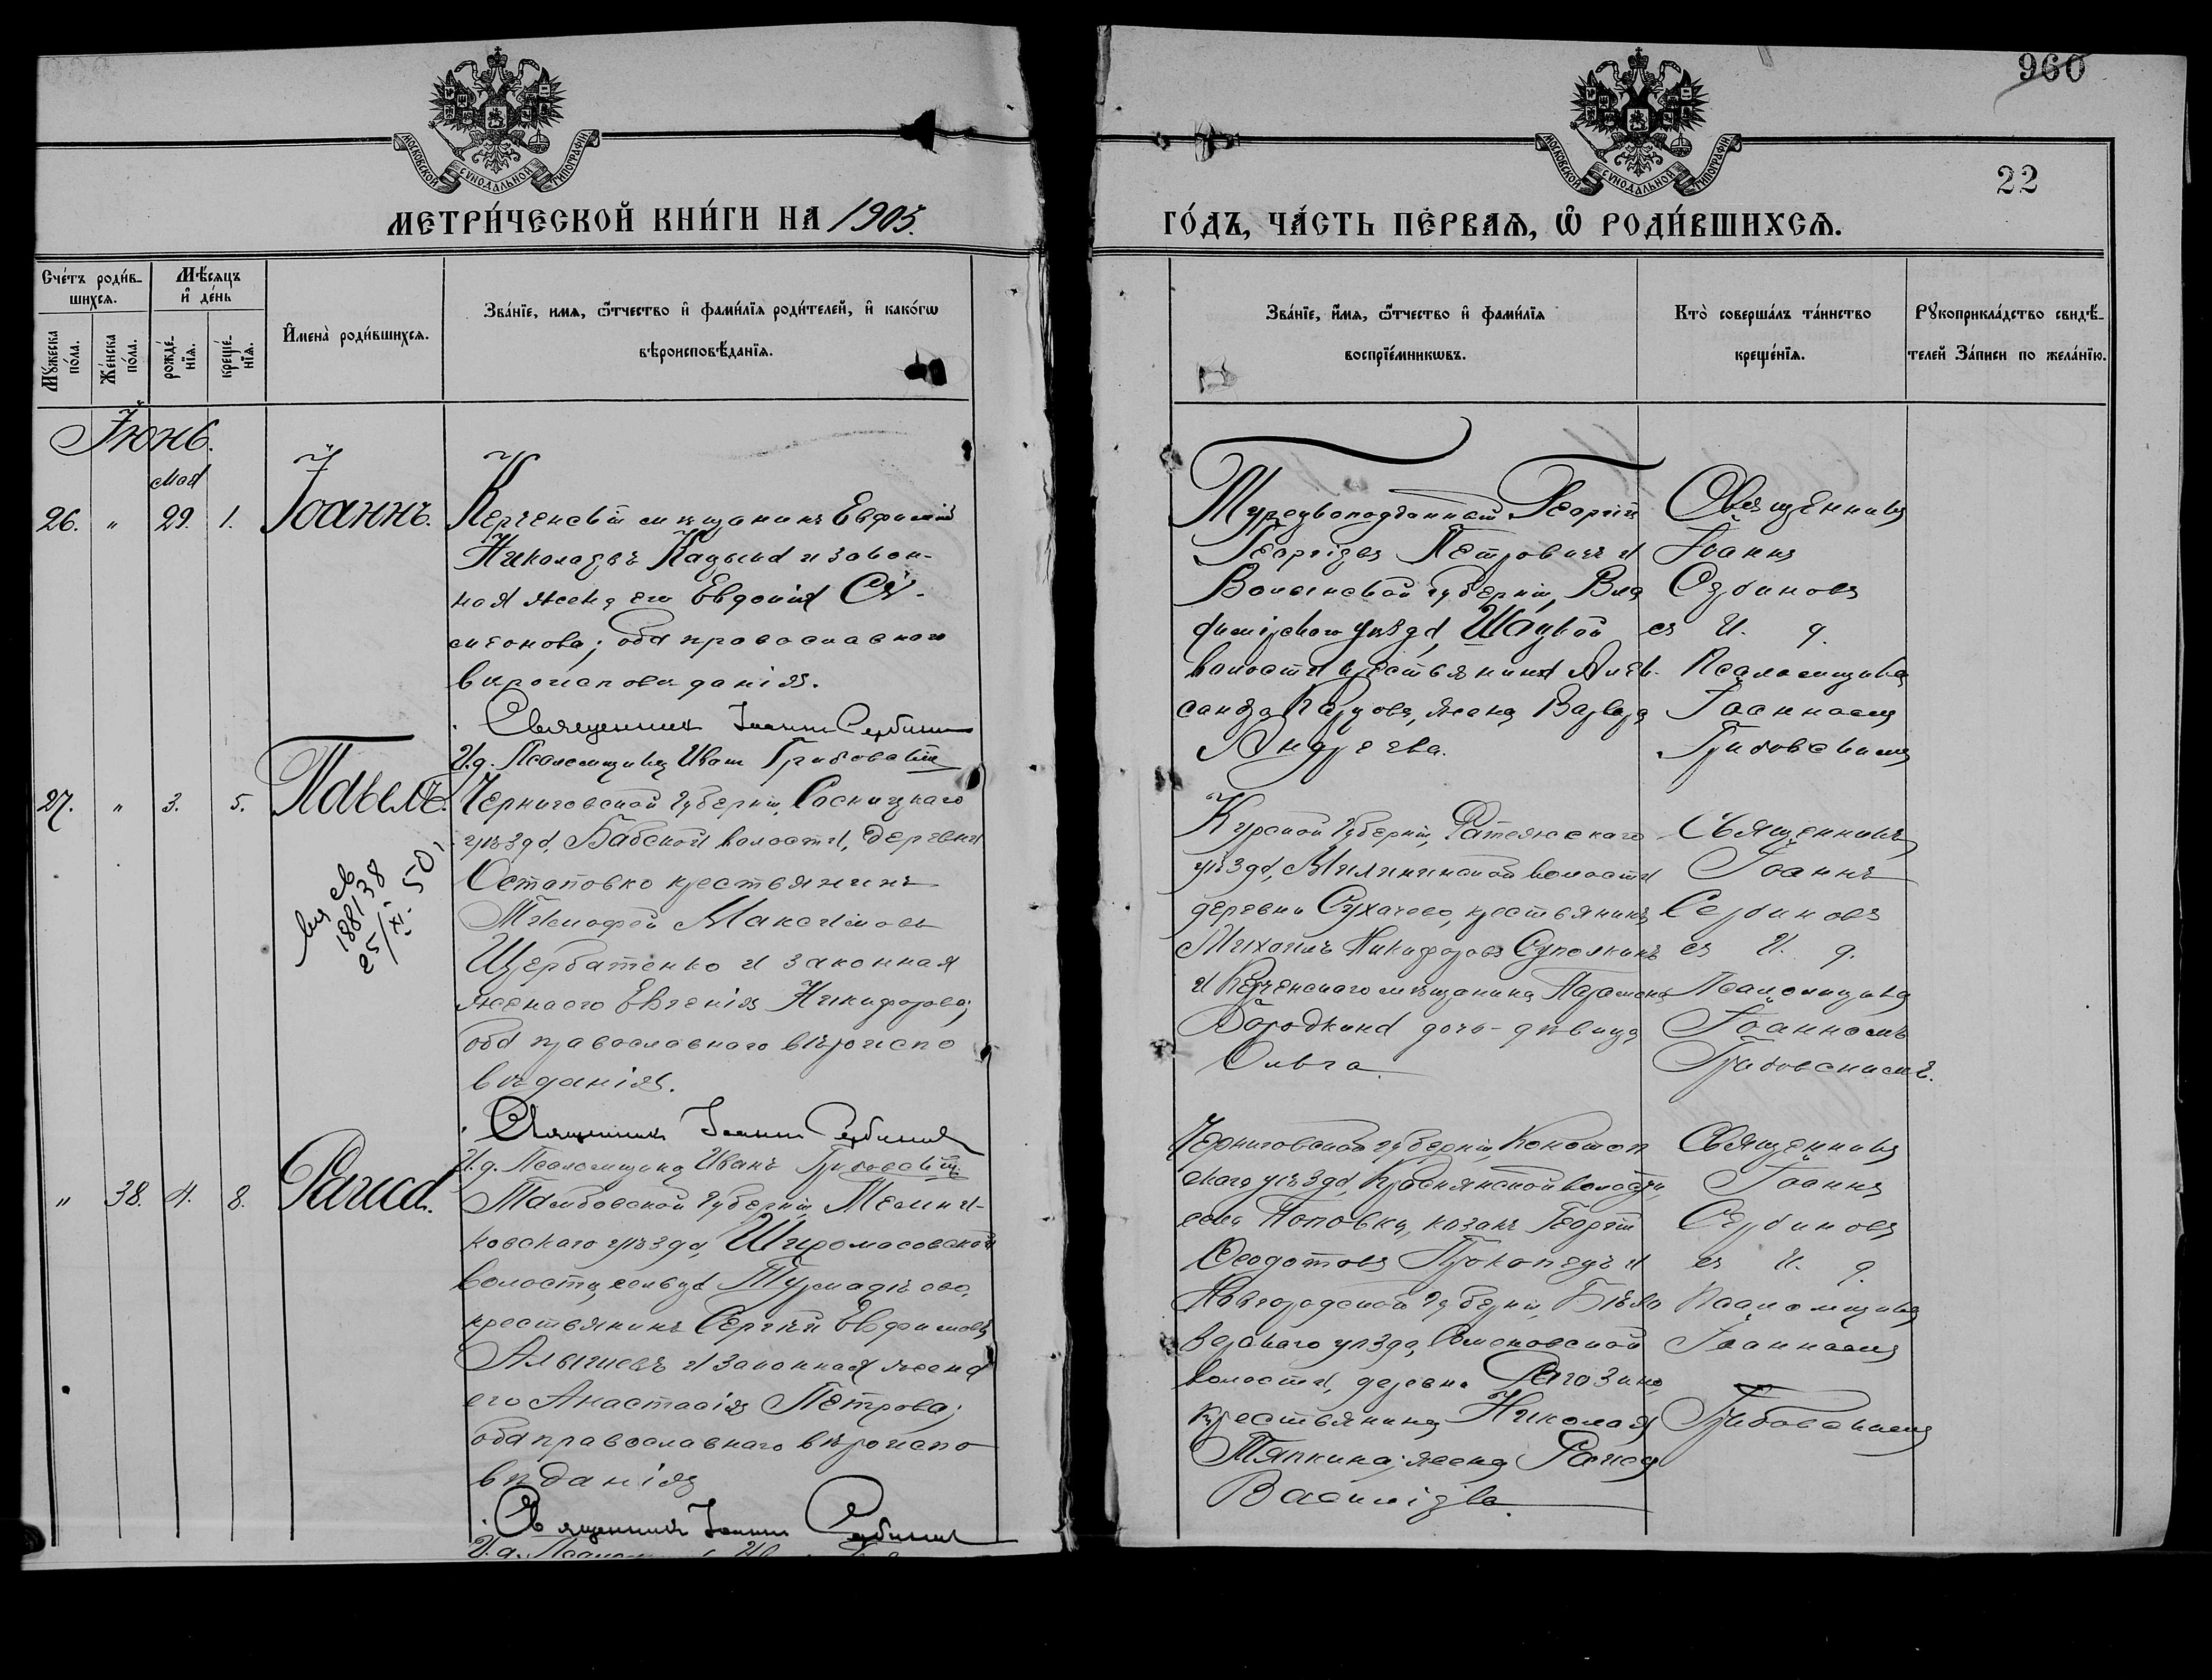 960
22
МОСКОВСКОЙ СѴНОДАЛЬНОЙ ТИПОГРАФІИ
МОСКОВСКОЙ СѴНОДАЛЬНОЙ ТИПОГРАФІИ
МЕТРИ́ЧЕСКОЙ КНИ́ГИ НА 1905.
ГО́ДЪ, ЧА́СТЬ ПЕ́РВАѦ, Ѡ РОДИ́ВШИХСѦ.
Сче́тъ роди́в-
шихсѧ.
Мꙋ́жеска по́ла.
Же́нска по́ла.
Мѣ́сѧцъ
и҆ де́нь
рожде́-
нїѧ.
креще́-
нїѧ.
И҆мена̀ роди́вшихсѧ.
Зва́нїе, имѧ, ѻ҆́тчество и҆ фами́лїѧ роди́телей, и҆ како́гѡ
вѣроисповѣ́данїѧ.
Зва́нїе, и҆́мѧ, ѻ҆́тчество и҆ фами́лїѧ
воспрїе́мникѡвъ.
Кто̀ соверша́лъ та́инство
креще́нїѧ.
Рꙋкоприкла́дство свидѣ́-
телей За́писи по жела́нїю.
Іюнь.
мая
26. " 29. 1. Іоаннъ.
Керченскій мѣщанинъ Евфимій
Николаевъ и закон-
ная жена его Евдокія Си-
меонова; оба православнаго
вѣроисповѣданія.
Священникъ Іоаннъ Сербиновъ
И.д. Псаломщика Иванъ Грибовскій
Турецкоподданный Георгій
Георгіевъ Петровичъ и
Волынской губерніи, Вла
димірскаго уѣзда, Шацкой
волости крестьянина Алек-
сандра Карпова, жена Варвара
Андреева.
Священникъ
Іоаннъ
Сербиновъ
съ И. д.
Псаломщика
Іоанномъ
Грибовскимъ
27. " 3. 5. Павелъ.
188138
25/XI-50
Черниговской губерніи, Сосницкаго
уѣзда, Бабской волости, деревни
Остаповко крестьянинъ
Тимофей Максимовъ
Щербатенко и законная
жена его Евгенія Никифорова;
оба православнаго вѣроиспо
вѣданія.
Священникъ Іоаннъ Сербиновъ
И.д. Псаломщика Иванъ Грибовскій
Курской губерніи, Фатежскаго
уѣзда, Миленинской волости
деревни Сухачево, крестьянинъ
Михаилъ Никифоровъ
и Керченскаго мѣщанина Парамона
Бородкина дочь-дѣвица
Ольга
Священникъ
Іоаннъ
Сербиновъ
съ И. д.
Псаломщика
Іоанномъ
Грибовскимъ.
" 38. 4. 8. Раиса.
Тамбовской губерніи,
ковскаго уѣзда, Широмасовской
волости, сельца
крестьянинъ Сергѣй Евфимовъ
и законная жена
его Анастасія Петрова;
оба православнаго вѣроиспо
вѣданія
Священникъ Іоаннъ Сербиновъ
Черниговской губерніи, Конотоп
скаго уѣзда, Краснянской волости
села Поповки, козакъ Георгій
Ѳеодотовъ Прокопецъ и
Новгородской губерніи, Бѣло
зерскаго уѣзда,
волости, деревни Рагозино,
крестьянина Николая
Тяпкина; жена Раиса
Василіева.
Священникъ
Іоаннъ
Сербиновъ
съ И. д.
Псаломщика
Іоанномъ
Грибовскимъ